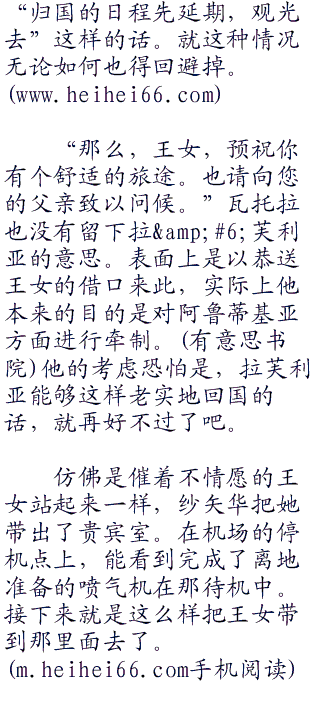 “归国的日程先延期，观光
去”这样的话。就这种情况
无论如何也得回避掉。
(www.heihei66.com)
“那么，王女，预祝你
有个舒适的旅途。也请向您
的父亲致以问候。”瓦托拉
也没有留下拉&amp;#6;芙利
亚的意思。表面上是以恭送
王女的借口来此，实际上他
本来的目的是对阿鲁蒂基亚
方面进行牵制。(有意思书
院)他的考虑恐怕是，拉芙利
亚能够这样老实地回国的
话，就再好不过了吧。
仿佛是催着不情愿的王
女站起来一样，纱矢华把她
带出了贵宾室。在机场的停
机点上，能看到完成了离地
准备的喷气机在那待机中。
接下来就是这么样把王女带
到那里面去了。
(m.heihei66.com手机阅读)